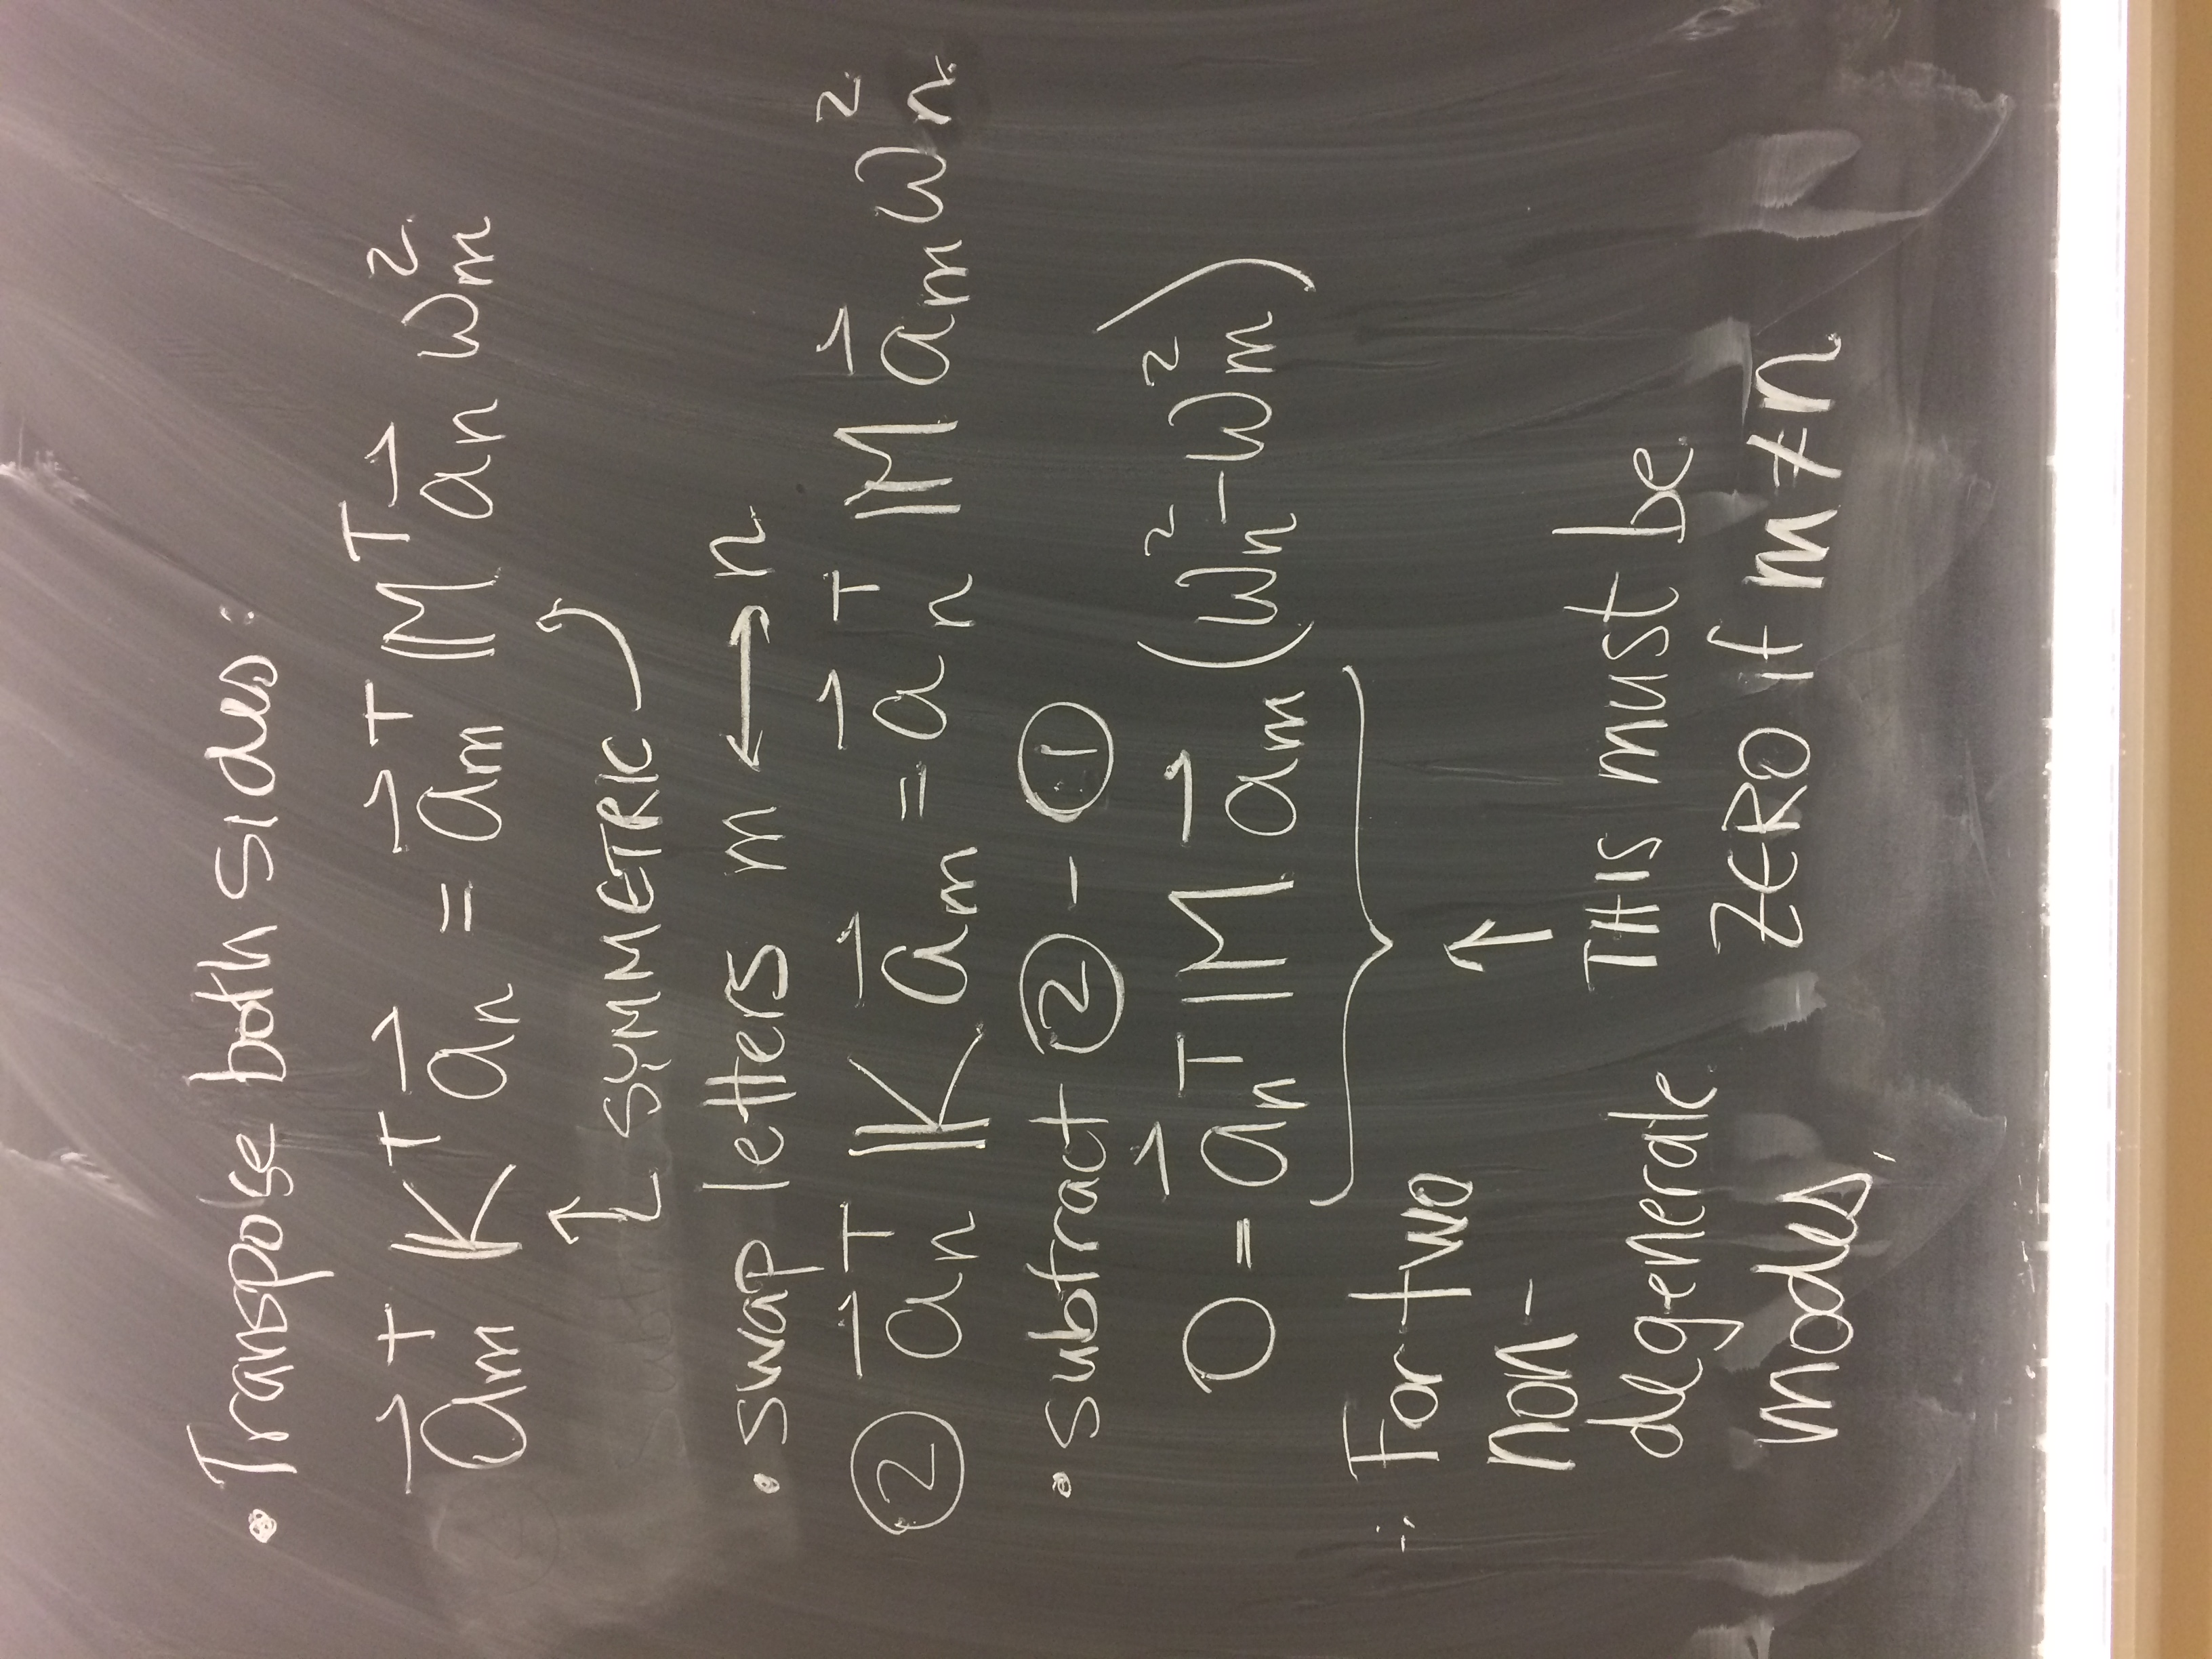 • Transpose both sides:
a⃗ₘᵀ 𝕂ᵀ a⃗ₙ = a⃗ₘᵀ 𝕄ᵀ a⃗ₙ ωₘ²
↑ SYMMETRIC ↑
• swap letters m ⟷ n
② a⃗ₙᵀ 𝕂 a⃗ₘ = a⃗ₙᵀ 𝕄 a⃗ₘ ωₙ²
• subtract ② - ①
0 = a⃗ₙᵀ 𝕄 a⃗ₘ (ωₙ² - ωₘ²)
∴ For two
non-
degenerate
modes,
↑
THIS must be
ZERO if m ≠ n